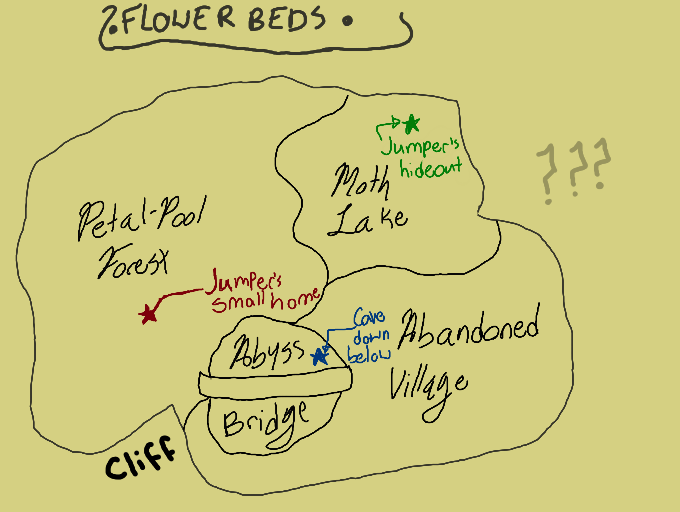 FLOWER BEDS
Jumper's
hideout
???
Moth
Lake
Petal-Pool
Forest
Jumper's
small home
Cave
down
below
Abyss
Abandoned
Village
Bridge
Cliff